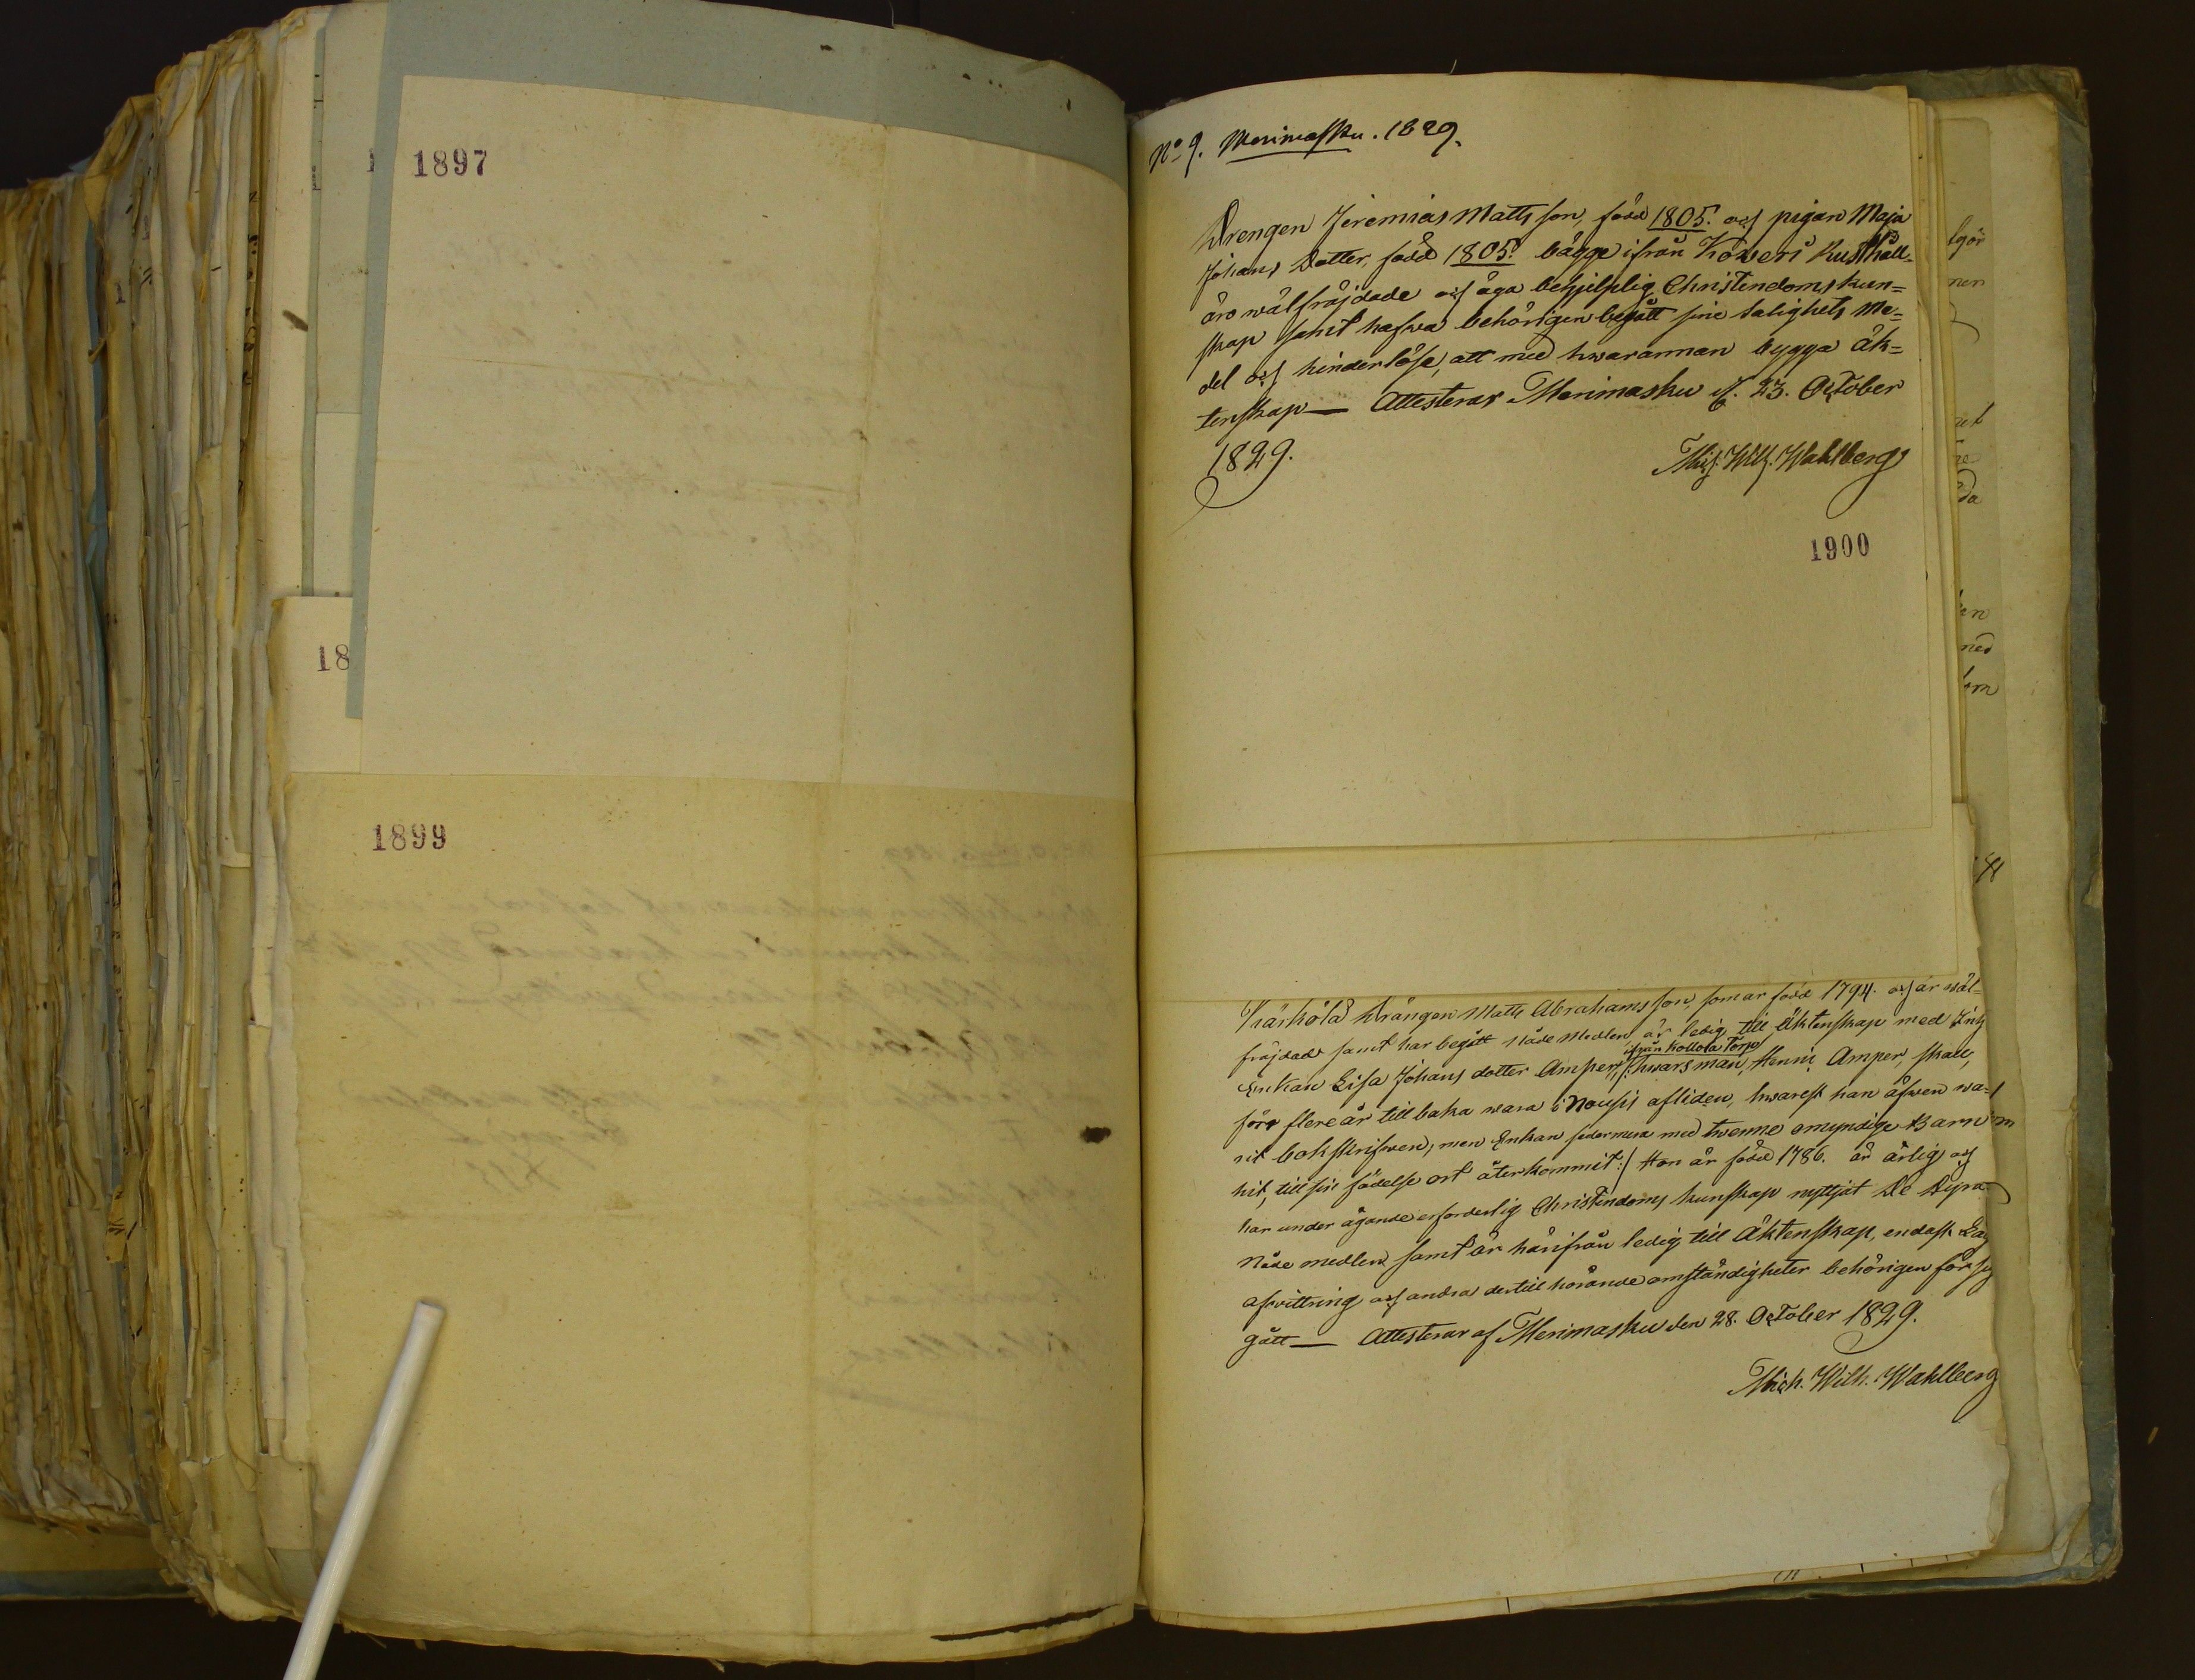 1897
18
1899
No 9. Merimasku. 1829.
Drengen Jeremias Matts son, född 1805. och pigan Maja
Johans Dotter, född 1805. bägge ifrån Köweri Rusthåll
äro wälfräjdade och äga behjelplig Christendoms kun=
skap samt hafwa behörigen begått sine salighets Me=
del och hinderlöse, att med hwarannan bygga äk=
tenskap — Attesterar Merimasku d. 23. October
1829.
Mich. Wilh. Wahlberg
1900
Kärkölä Drängen Matts Abrahams son, som är född 1794. och är wäl=
fräjdad samt har begått Nåde Medlen, är ledig till Äktenskap med Inh
ifrån Kollola Torp
Enkan Lisa Johans dotter Amper, /: hwars man, Henric Amper, skall,
före flere år tillbaka wara i Nousis afliden, hwarest han äfwen wa=
rit bokskrifwen, men Enkan sedermera med twenne omyndige Barn
hit, till sin födelse ort återkommit :/ Hon är född 1786. är ärlig och
har under ägande erforderlig Christendoms kunskap nyttjat De Dyra
Nåde medlen samt är härifrån ledig till Äktenskap, endast Lag
afvittring och andra dertill hörande omständigheter behörigen för sig
gått — Attesterar af Merimasku den 28. October 1829.
Mich. Wilh. Wahlberg